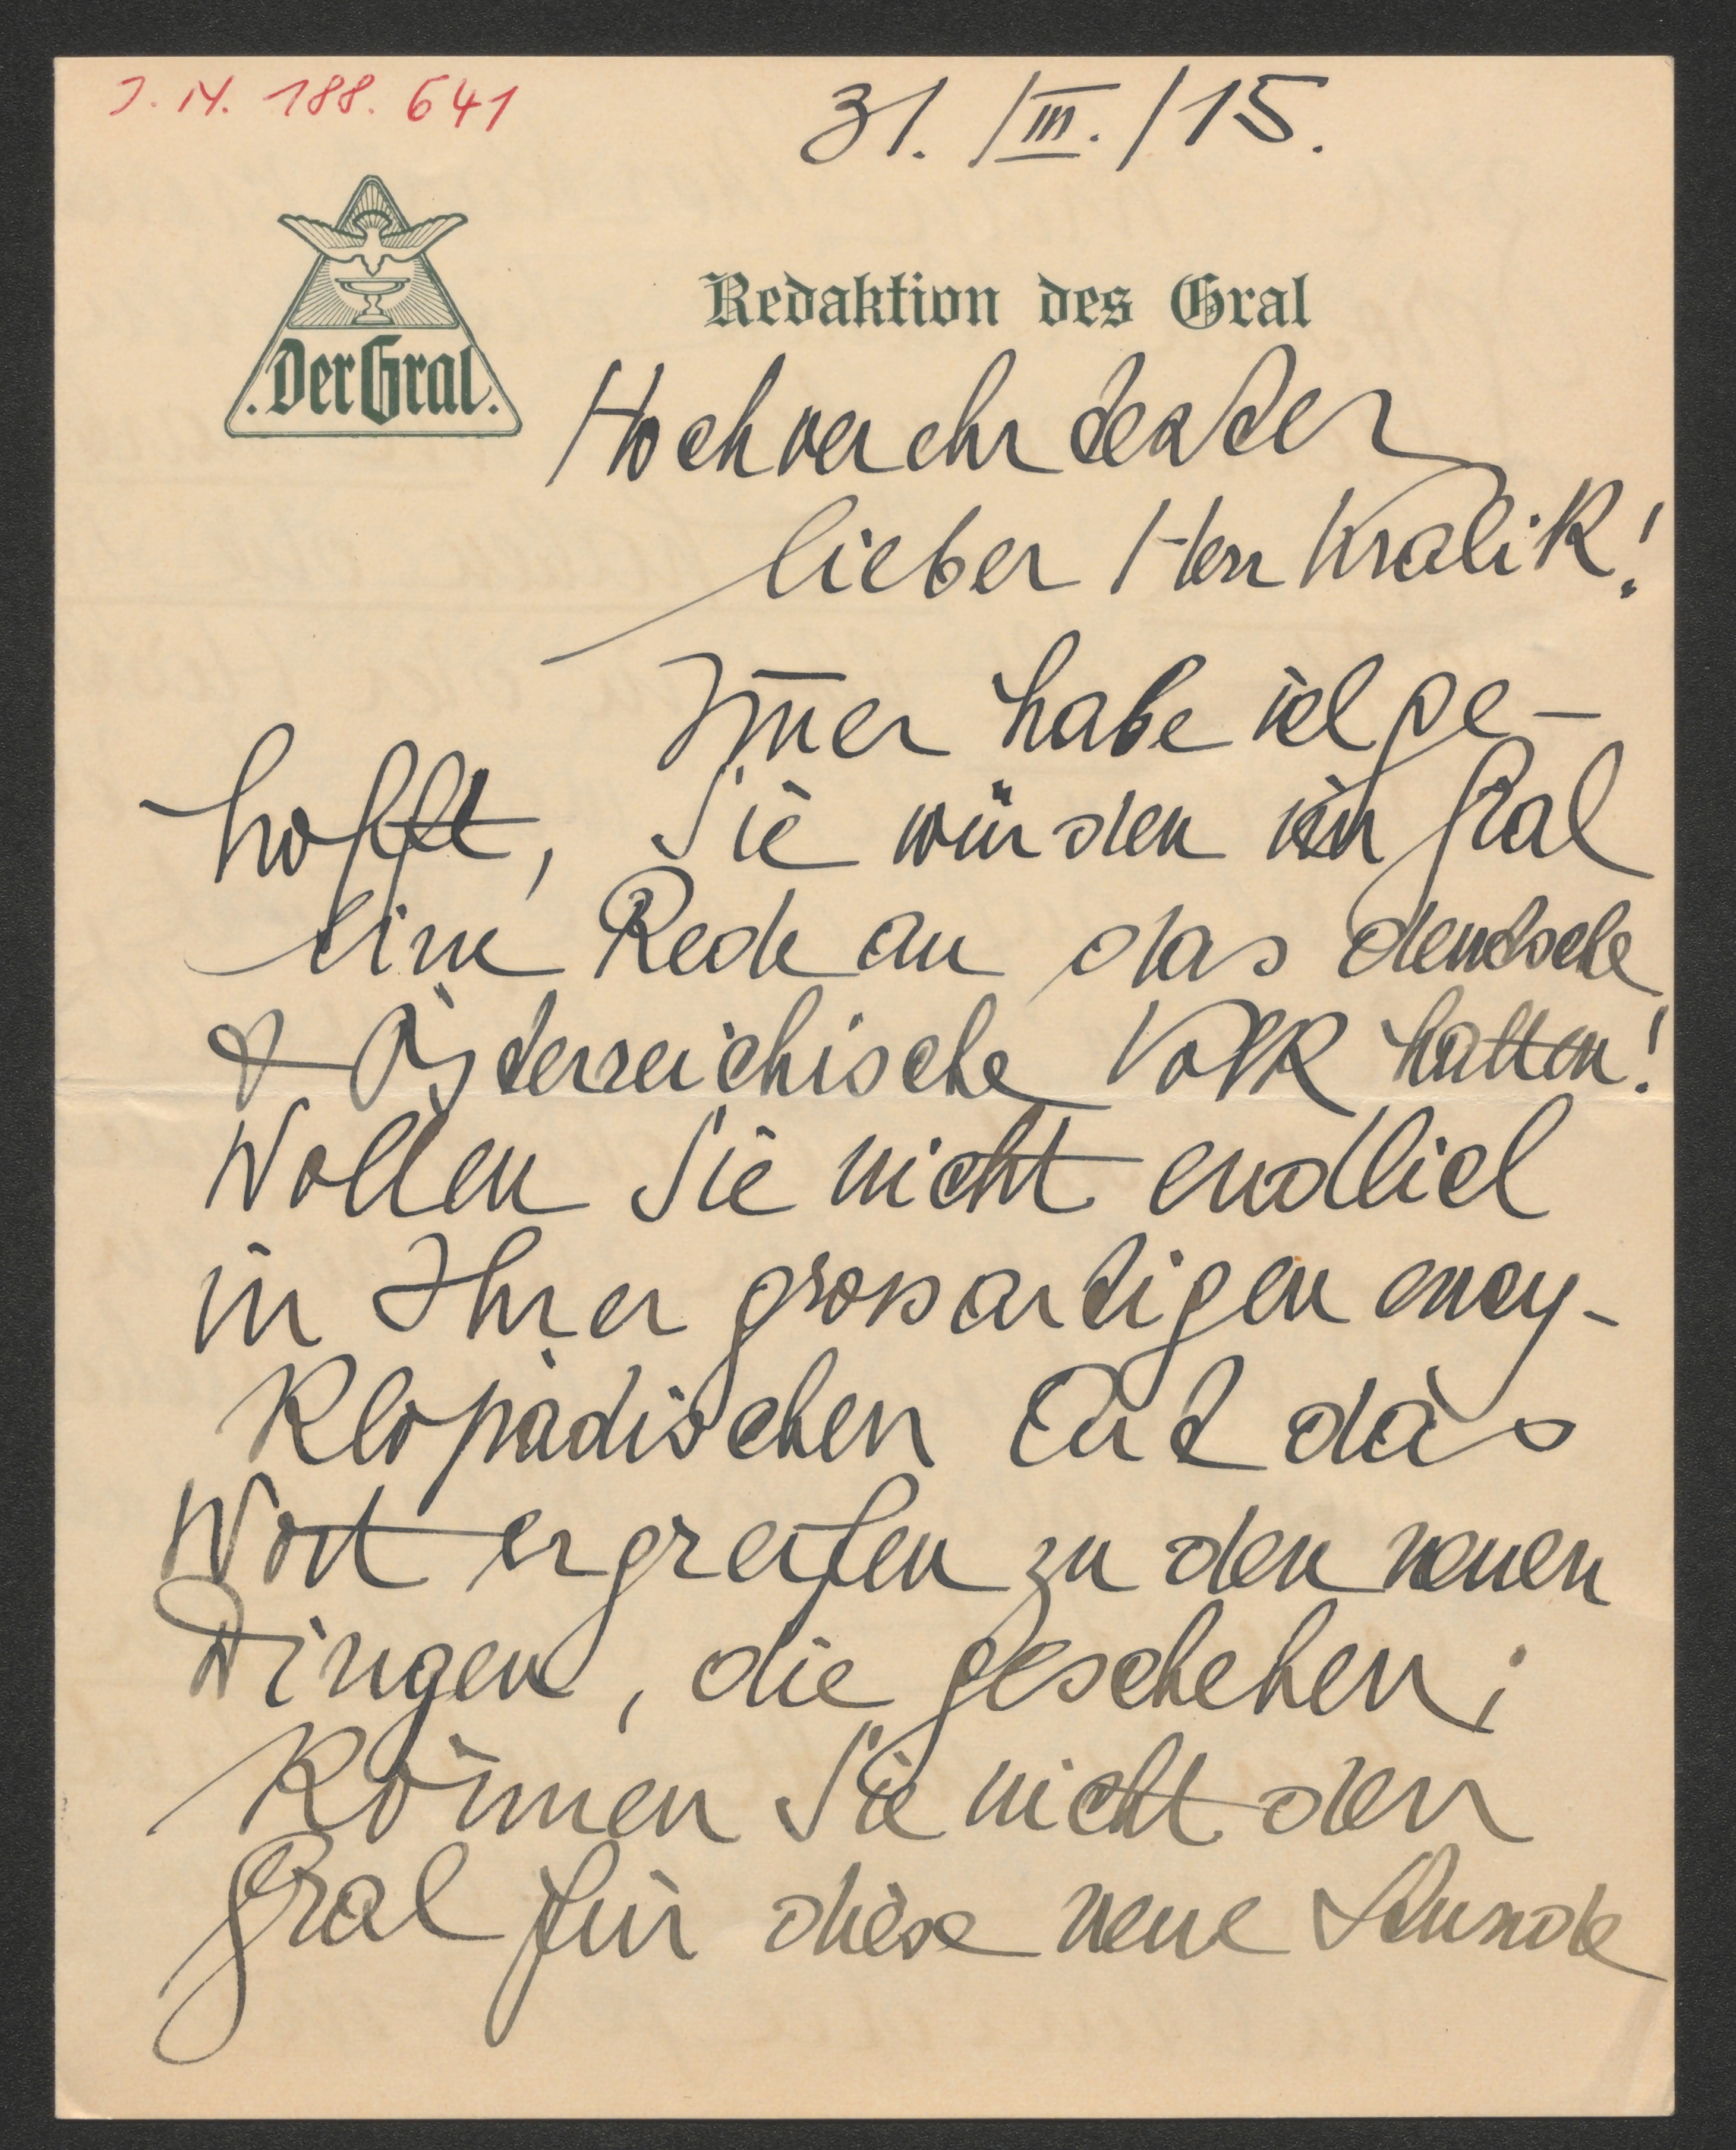 J. N. 188.641
31./III./15.
Der Gral.
Redaktion des Gral
Hochverehrdester
lieber Herr Kralik!
Im̅er habe ich ge-
hofft, Sie würden im Gral
eine Rede an das deutsche
& Österreichische Volk halten!
Wollen Sie nicht endlich
in Ihrer grossartigen ency-
klopädischen Art das
Wort ergreifen zu den neuen
Dingen, die geschehen;
Können Sie nicht den
Gral für diese neue Stunde